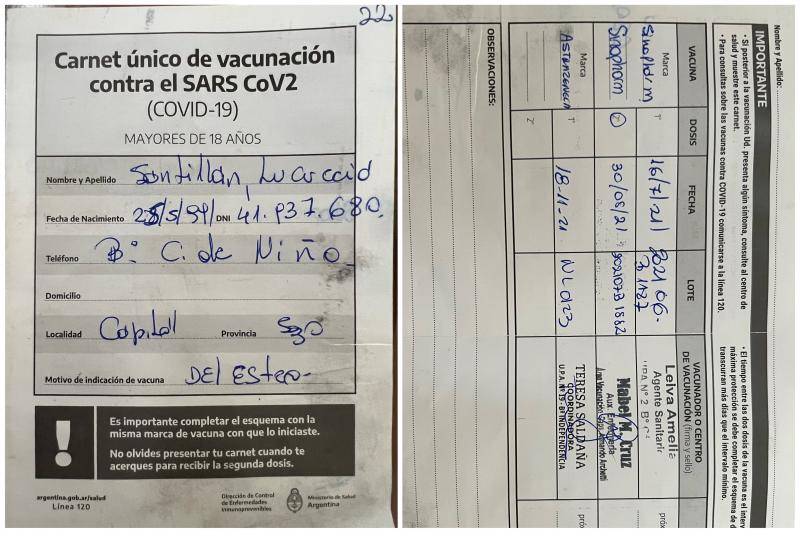 22
Carnet único de vacunación
contra el SARS CoV2
(COVID-19)
MAYORES DE 18 AÑOS
Nombre y Apellido Santillán,
Fecha de Nacimiento 25/5/99/ DNI 41.937.680.
Teléfono B° C. de Niño
Domicilio
Localidad Capital Provincia Sgo
Motivo de indicación de vacuna DEl Estero-
Es importante completar el esquema con la
misma marca de vacuna con que lo iniciaste.
No olvides presentar tu carnet cuando te
acerques para recibir la segunda dosis.
argentina.gob.ar/salud
Línea 120
Dirección de Control
de Enfermedades
Inmunoprevenibles
Ministerio de Salud
Argentina
Nombre y Apellido:
IMPORTANTE
• Si posterior a la vacunación Ud. presenta algún síntoma, consulte al centro de
salud y muestre este carnet.
• Para consultas sobre las vacunas contra COVID-19 comunicarse a la línea 120.
• El tiempo entre las dos dosis de la vacuna es el inter
máxima protección se debe completar el esquema de d
transcurran más días que el intervalo mínimo.
VACUNA DOSIS FECHA LOTE VACUNADOR O CENTRO
DE VACUNACIÓN (firma y sello)
Sinopharm Marca 1° 16/7/21 202106-
Leiva Amelia
Agente Sanitari
UPA N° 2 B°
próx
Sinopharm 2 30/08/21 20210731882
Mabel M. Cruz
Aux. Enfermería
próx
Marca 1° 18-11-21
TERESA SALDAÑA
COORDINADORA
U.P.A. N° 19 - B° INDEPENDENCIA
2°
pró
OBSERVACIONES: